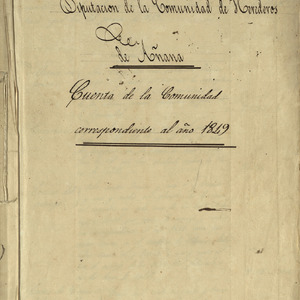 Diputacion de la Comunidad de Herederos
de Añana
Cuenta de la Comunidad
correspondiente al año 1849